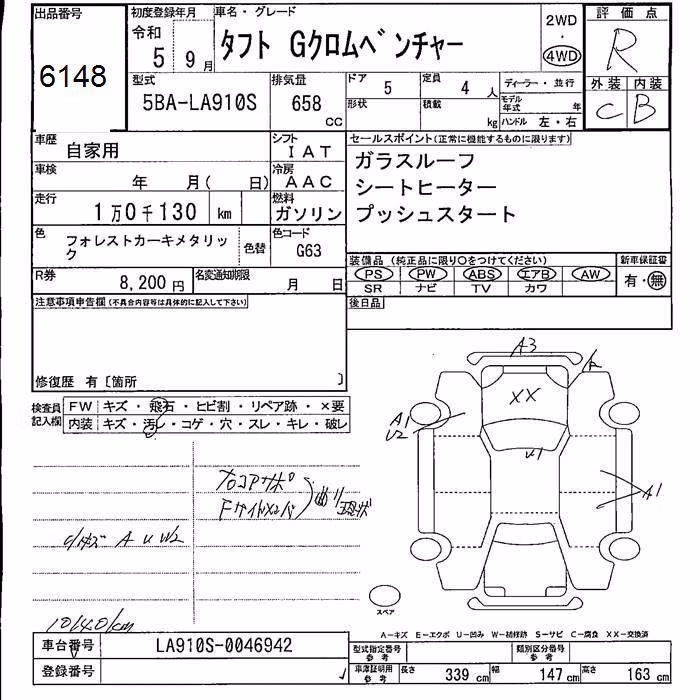 出品番号
6148
初度登録年月
令和
5 9月
車名・グレード
タフト Gクロムベンチャー
2WD
・
4WD
評価点
R
外装 内装
C B
型式
5BA-LA910S
排気量
658
CC
ドア 5
定員 4 人
形状
積載 kg
ディーラー・並行
モデル年式 年
ハンドル 左・右
車歴
自家用
シフト
IAT
車検
年 月( 日)
冷房
AAC
走行
1万0千130 km
燃料
ガソリン
色
フォレストカーキメタリック
色替
色コード
G63
R券
8,200円
名変通知期限
月 日
セールスポイント(正常に機能するものに限ります)
ガラスルーフ
シートヒーター
プッシュスタート
装備品 (純正品に限り○をつけてください)
新車保証書
PS PW ABS エアB AW
有・無
SR ナビ TV カワ
後日品
注意事項申告欄(不具合内容等は具体的に記入して下さい)
修復歴 有〔箇所 〕
検査員記入欄
FW キズ・飛石・ヒビ割・リペア跡・×要
内装 キズ・汚レ・コゲ・穴・スレ・キレ・破レ
A3
XX
A1
U2
U1
A1
小キズ A U W2
10140km
スペア
A-キズ E-エクボ U-凹み W-補修跡 S-サビ C-腐食 XX-交換済
車台番号
LA910S-0046942
登録番号
型式指定番号
参考
類別区分番号
参考
車庫証明用
参考
長さ 339 cm 幅 147 cm 高さ 163 cm